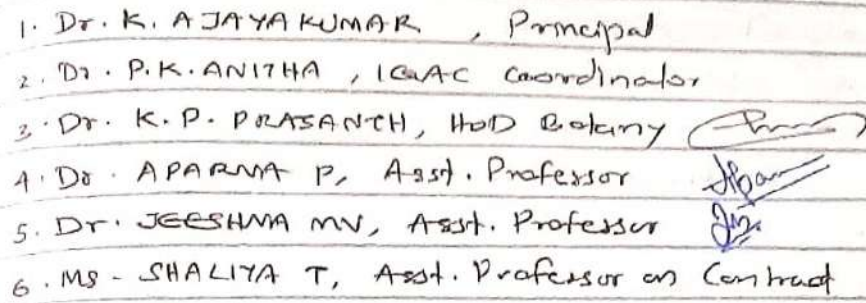 1. Dr. K. AJAYAKUMAR , Principal
2. Dr. P.K. ANITHA , IQAC Coordinator
3. Dr. K. P. PRASANTH, HOD Botany
4. Dr. APARNA P, Asst. Professor
5. Dr. JEESHMA MV, Asst. Professor
6. Ms - SHALIYA T, Asst. Professor on Contract